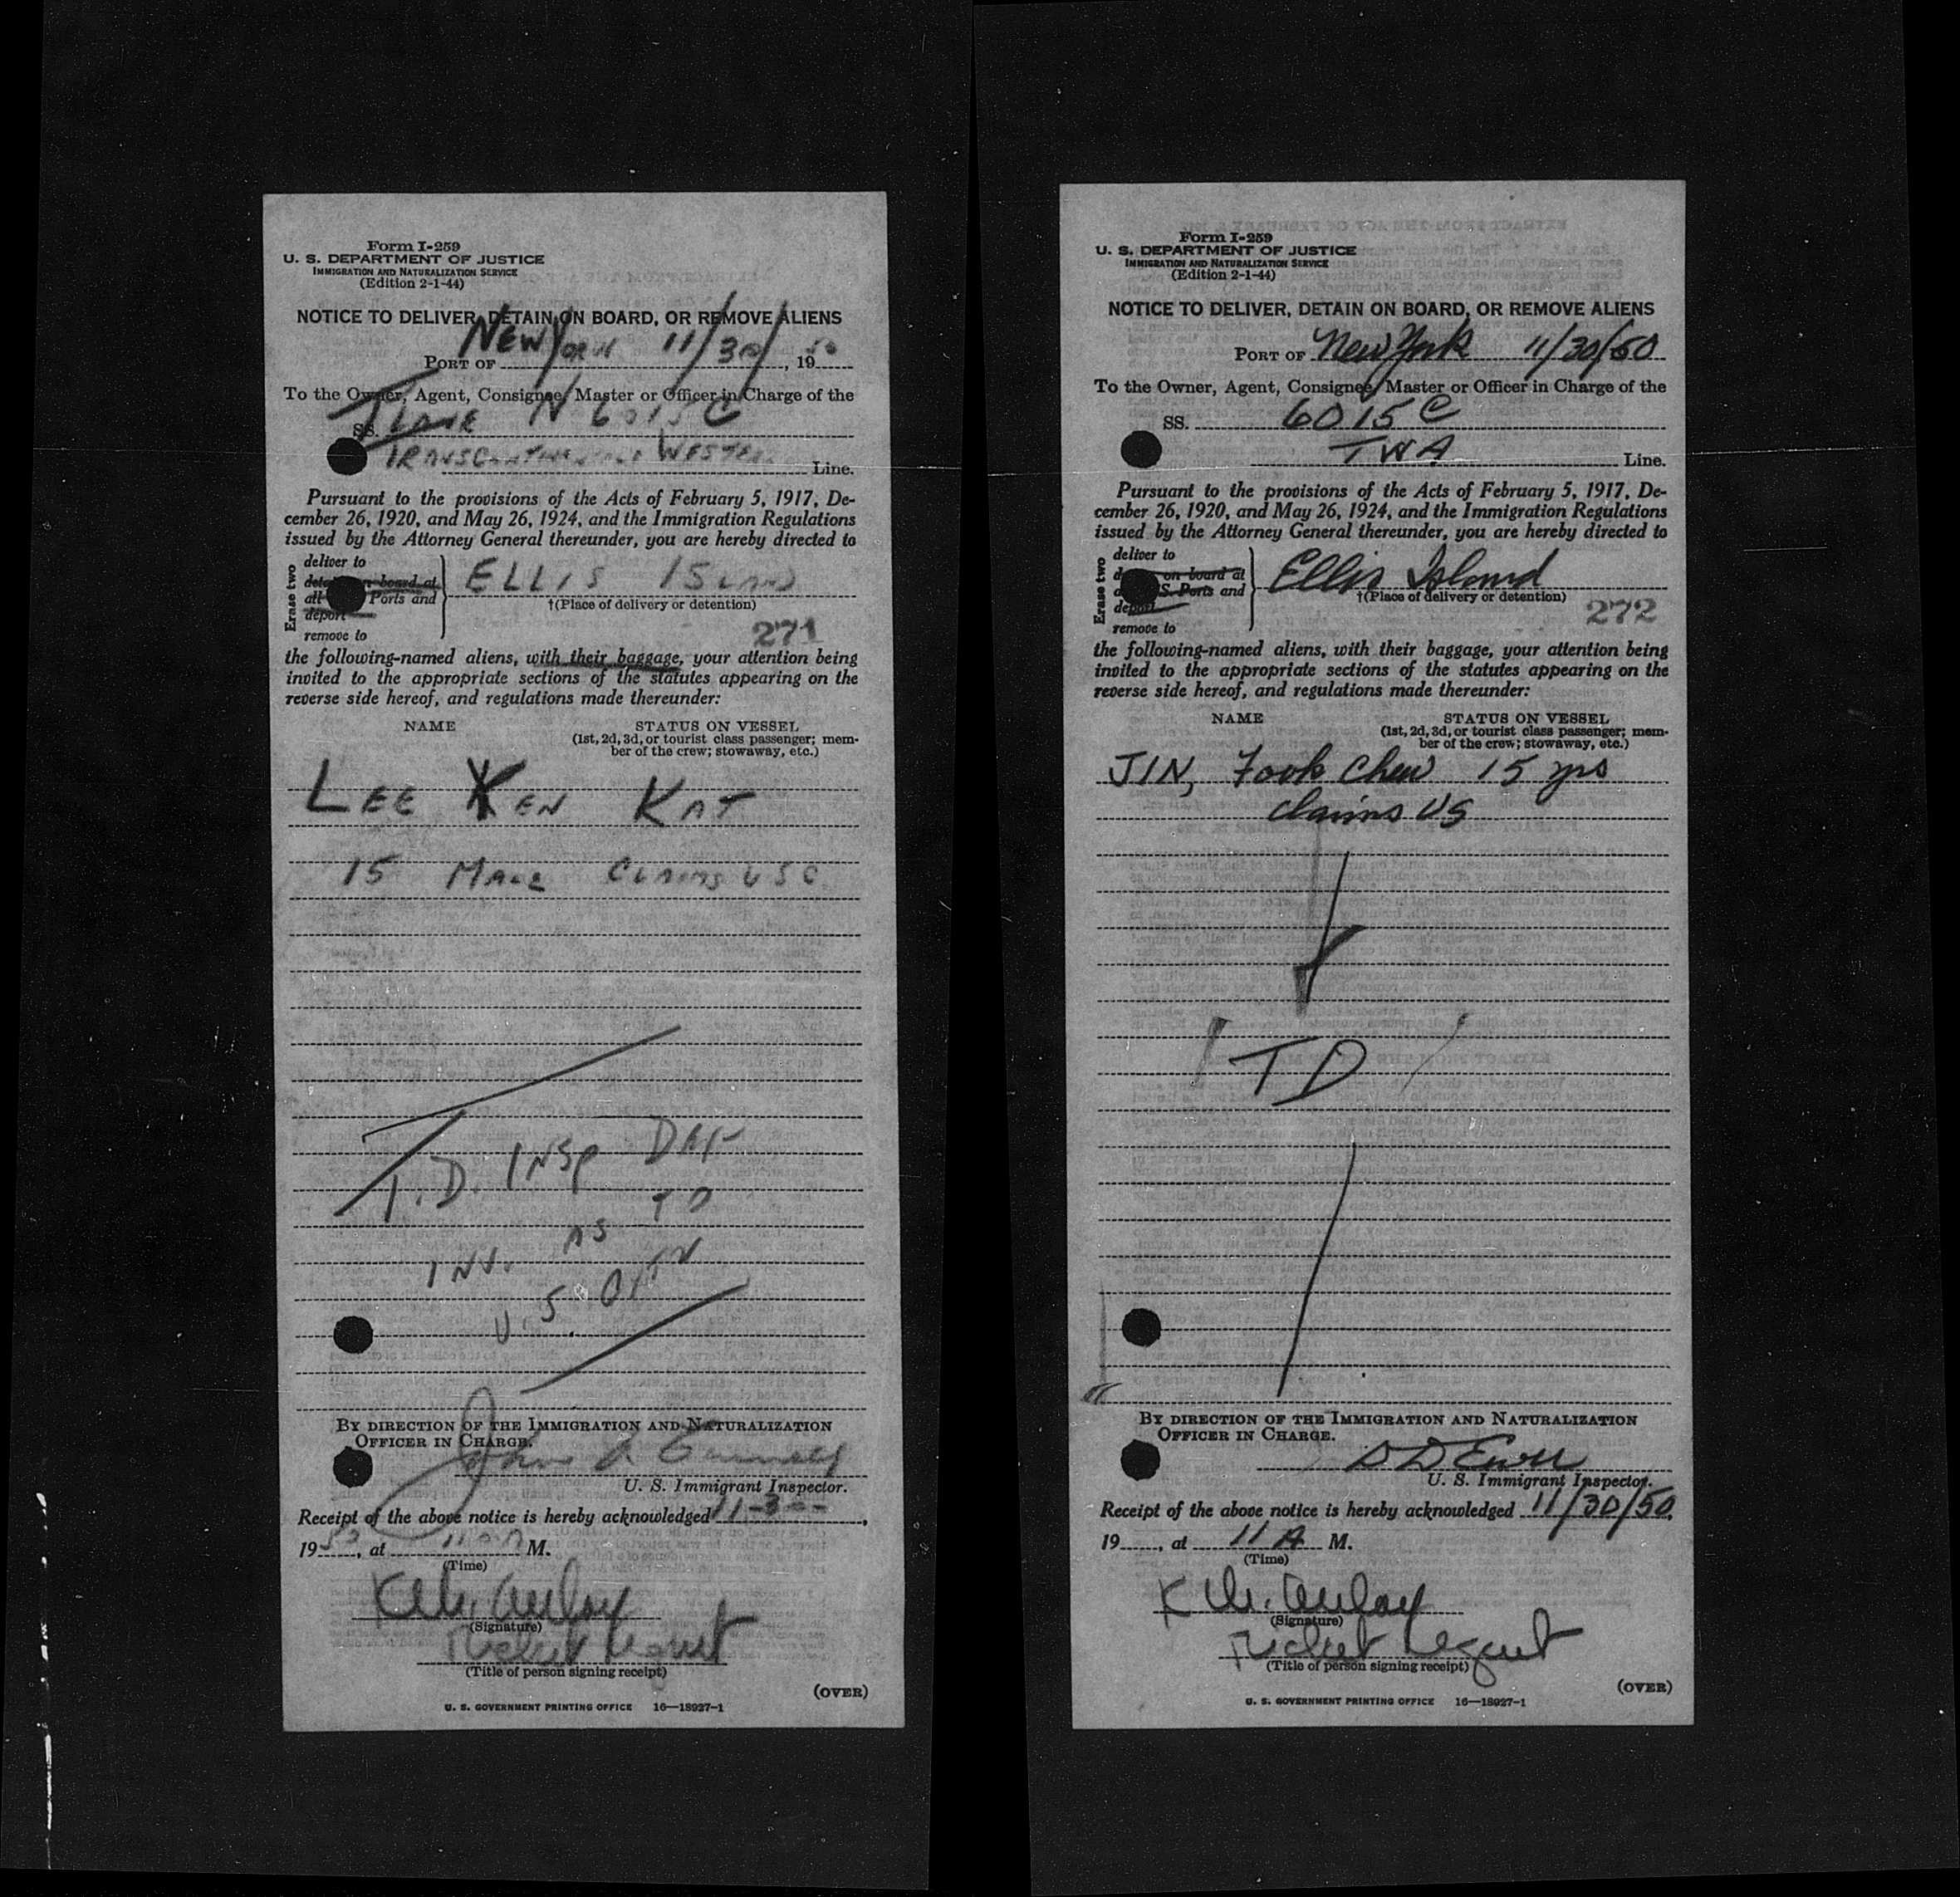 Form I-259
U. S. DEPARTMENT OF JUSTICE
IMMIGRATION AND NATURALIZATION SERVICE
(Edition 2-1-44)
NOTICE TO DELIVER, DETAIN ON BOARD, OR REMOVE ALIENS
PORT OF New York 11/30/, 1950
To the Owner, Agent, Consignee, Master or Officer in Charge of the
SS. PLANE N 6015C
TRANSCONTINENTAL WESTERN Line.
Pursuant to the provisions of the Acts of February 5, 1917, De-
cember 26, 1920, and May 26, 1924, and the Immigration Regulations
issued by the Attorney General thereunder, you are hereby directed to
Erase two
deliver to
on board at
all Ports and
deport
remove to
ELLIS ISLAND
†(Place of delivery or detention)
271
the following-named aliens, with their baggage, your attention being
invited to the appropriate sections of the statutes appearing on the
reverse side hereof, and regulations made thereunder:
NAME STATUS ON VESSEL
(1st, 2d, 3d, or tourist class passenger; mem-
ber of the crew; stowaway, etc.)
LEE KEN KAT
15 MALE CLAIMS USC
T.D. INSP DAF
AS TO
INV.
U.S.
BY DIRECTION OF THE IMMIGRATION AND NATURALIZATION
OFFICER IN CHARGE.
John A
U. S. Immigrant Inspector.
Receipt of the above notice is hereby acknowledged 11-30,
1950, at 11 A M.
(Time)
(Signature)
Ticket Agent
(Title of person signing receipt)
(OVER)
U. S. GOVERNMENT PRINTING OFFICE 16—18927-1
Form I-259
U. S. DEPARTMENT OF JUSTICE
IMMIGRATION AND NATURALIZATION SERVICE
(Edition 2-1-44)
NOTICE TO DELIVER, DETAIN ON BOARD, OR REMOVE ALIENS
PORT OF New York 11/30/50
To the Owner, Agent, Consignee, Master or Officer in Charge of the
SS. 6015C
TWA Line.
Pursuant to the provisions of the Acts of February 5, 1917, De-
cember 26, 1920, and May 26, 1924, and the Immigration Regulations
issued by the Attorney General thereunder, you are hereby directed to
Erase two
deliver to
on board at
S. Ports and
deport
remove to
Ellis Island
†(Place of delivery or detention)
272
the following-named aliens, with their baggage, your attention being
invited to the appropriate sections of the statutes appearing on the
reverse side hereof, and regulations made thereunder:
NAME STATUS ON VESSEL
(1st, 2d, 3d, or tourist class passenger; mem-
ber of the crew; stowaway, etc.)
JIN, Fook Chew 15 yrs
claims US
TD
BY DIRECTION OF THE IMMIGRATION AND NATURALIZATION
OFFICER IN CHARGE.
U. S. Immigrant Inspector.
Receipt of the above notice is hereby acknowledged 11/30/50,
19, at 11 A M.
(Time)
(Signature)
Ticket Agent
(Title of person signing receipt)
(OVER)
U. S. GOVERNMENT PRINTING OFFICE 16—18927-1